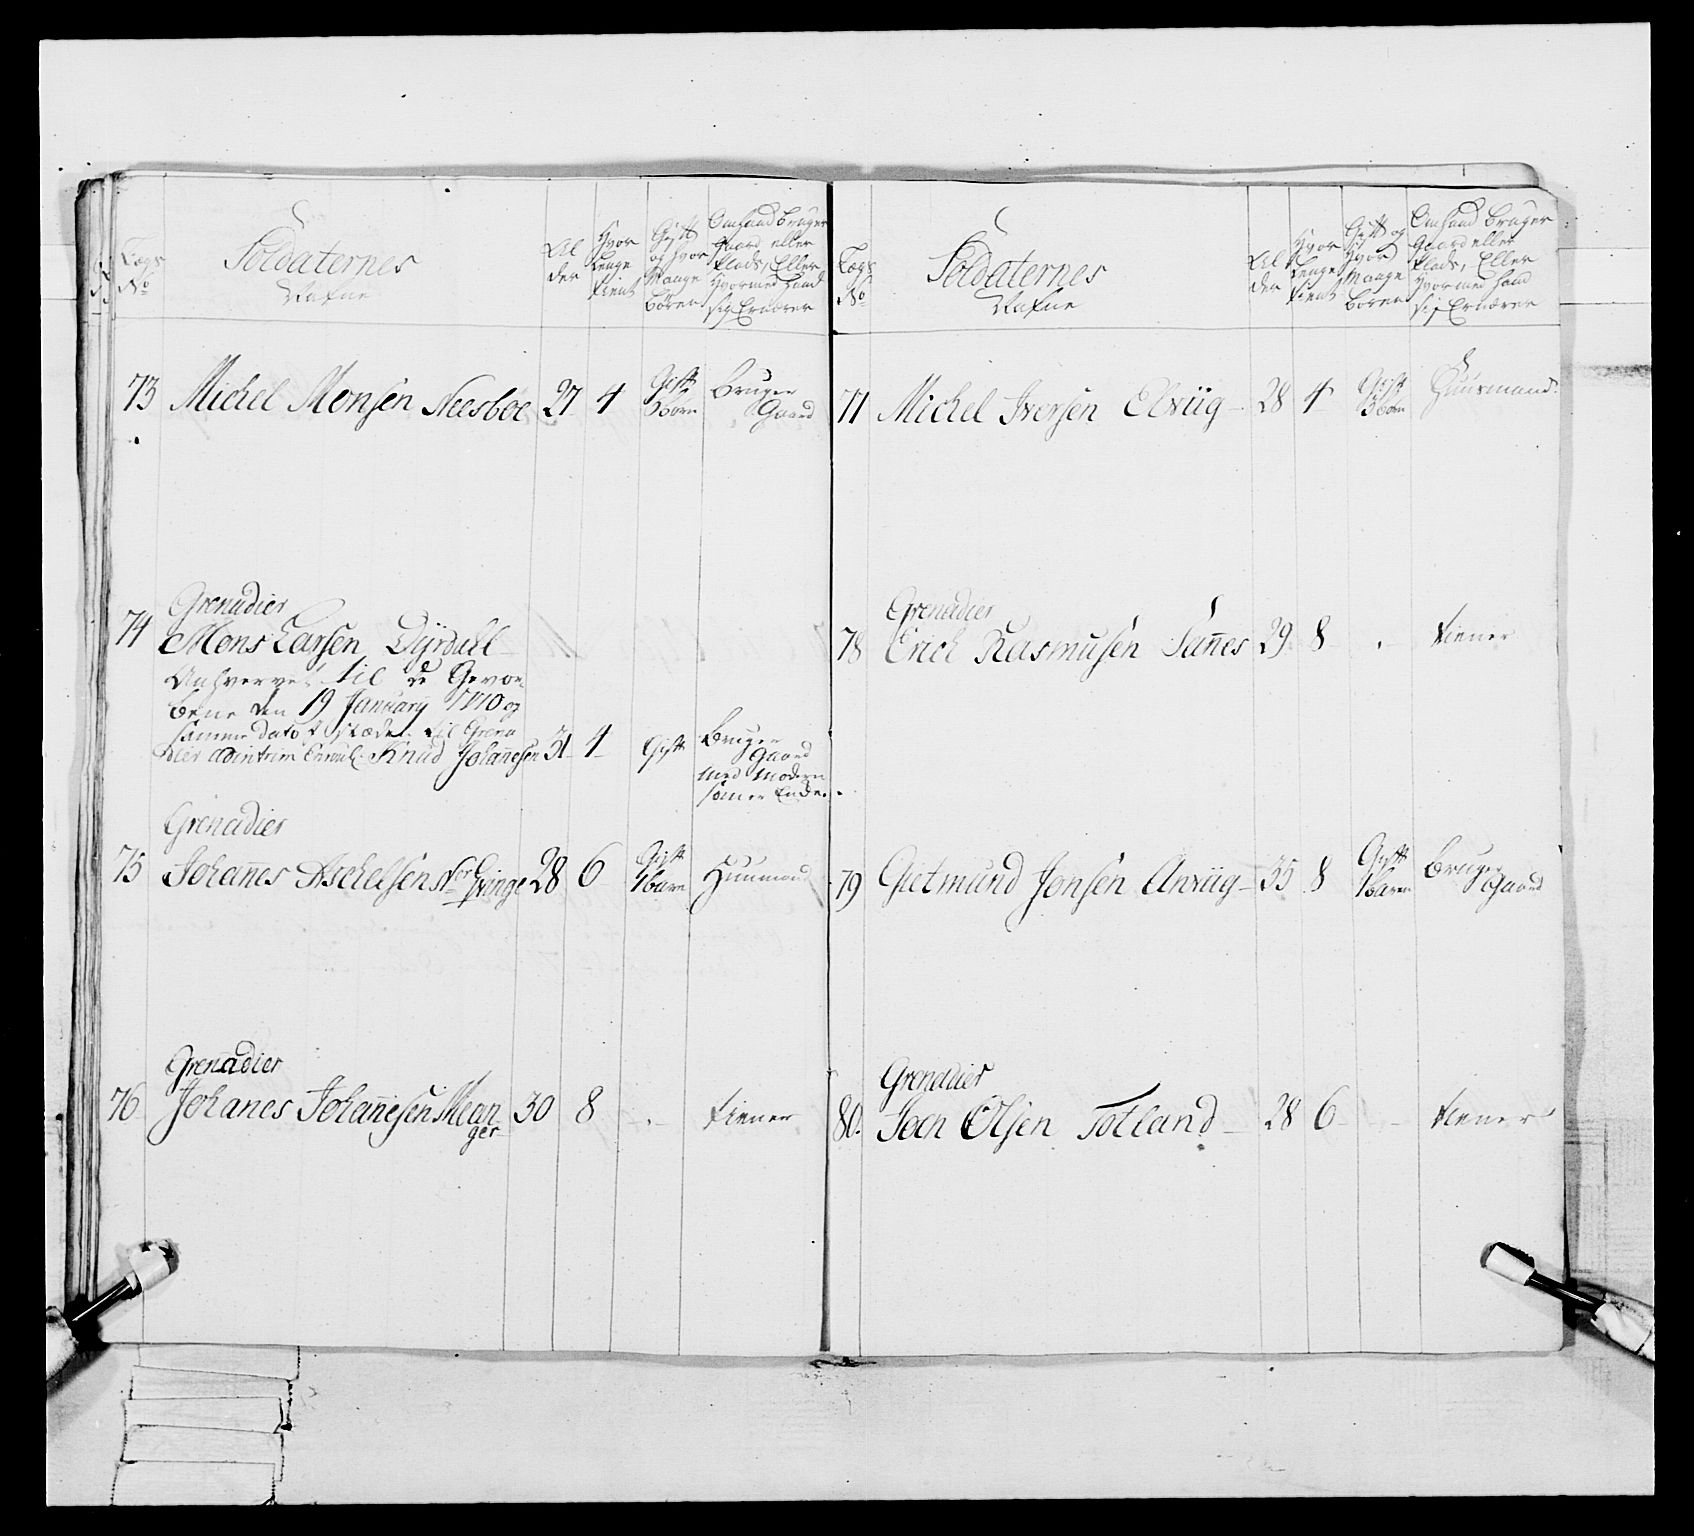 Lægs No
Soldaternes Nafne
Al der
Hvor Lenge tient
Gift og hvor Mange Børen
Om hand bruger Gaard eller Plads, Eller Hvormed hand sig Ernærer
73 Michel Monsen Neesbøe 27 4 Gift 3 børn Bruger Gaard
Grenadier
74 Mons Larsen Dyrdahl
Anhvervet til de Gevor
bene den 19 January 1770 og
samme dato
Knud Johannesen 31 4 Gift Bruger Gaard
med Moderen
som er Enke
Grenadier
75 Johannes Aschelsen Nor Qvinge 28 6 Gift 1 barn Huusmand
Grenadier
76 Johanes Johannesen Mean 30 8 - tiener
ger
Lægs No
Soldaternes Nafne
Al der
Hvor Lenge tient
Gift og Hvor Mange Børen
Om hand bruger Gaard eller Plads, Eller Hvormed hand sig Ernærer
77 Michel Iversen Elviig 28 4 Gift 3 børn Huusmand
Grenadier
78 Erich Rasmusen Sannes 29 8 - tiener
79 Gietmund Jonsen Anviig 35 8 Gift 1 baren Bruger Gaard
Grenadier
80. Joen Olsen Totland 28 6 - tiener